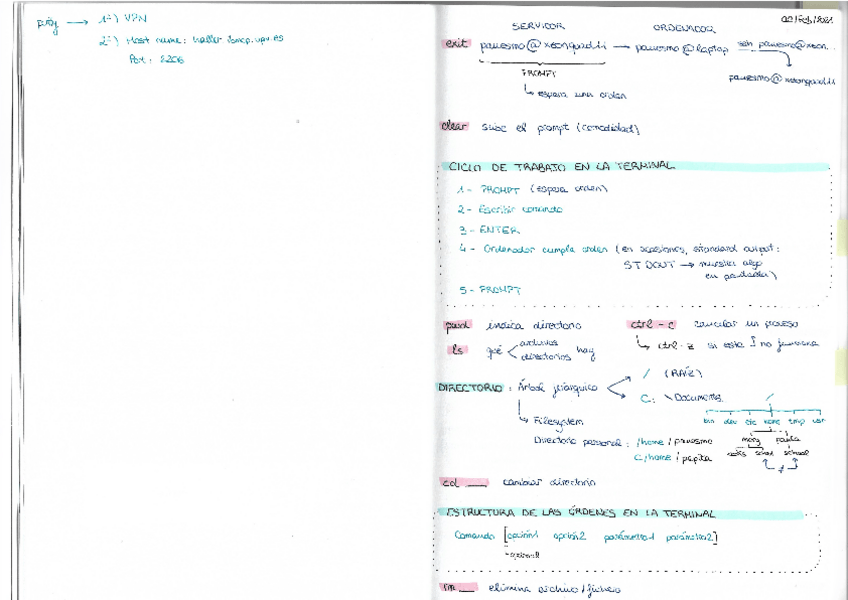 putty → 1º) VPN
2º) Host name:
Port: 2206
02/Feb/2021
SERVIDOR ORDENADOR
exit → pauesmo@laptop ssh
PROMPT
↳ espera una orden
clear sube el prompt (comodidad)
CICLO DE TRABAJO EN LA TERMINAL
1- PROMPT (espera orden)
2- Escribir comando
3- ENTER
4- Ordenador cumple orden (en ocasiones, standard output:
STDOUT → muestra algo
en pantalla)
5- PROMPT
pwd indica directorio ctrl-c cancelar un proceso
↳ ctrl-z si esta ↑ no funciona
ls qué archivos
directorios hay
DIRECTORIO: Árbol jerárquico / (RAÍZ)
C: \Documents
↳ Filesystem
bin dev etc home tmp usr
Directorio personal: /home/pauesmo
C/home/pepita
cd ___ cambiar directorio
ESTRUCTURA DE LAS ÓRDENES EN LA TERMINAL
Comando [opción1 opción2 parámetro1 parámetro2]
opcional
rm ___ elimina archivo/fichero